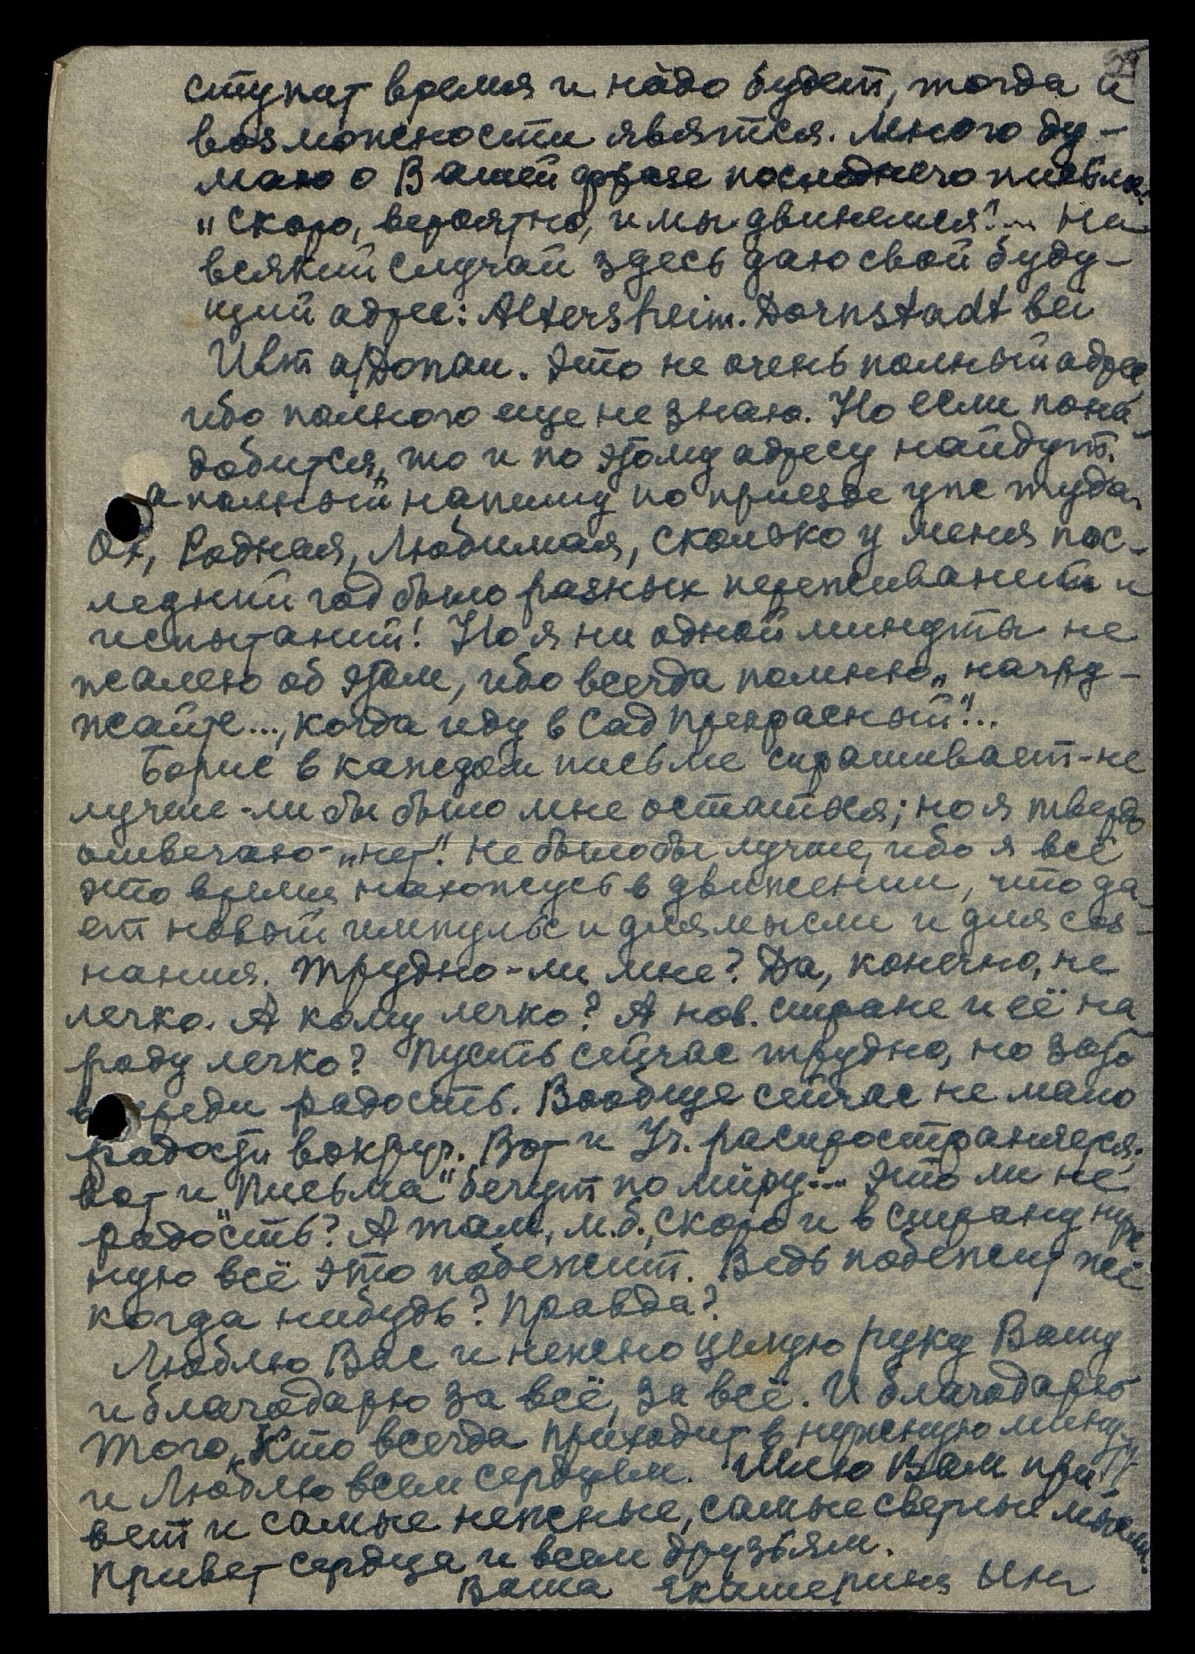 ступит время и надо будет, тогда и
возможности явятся. Много ду-
маю о Вашей фразе последнего письма:
"Скоро, вероятно, и мы двинемся"... На
всякий случай здесь даю свой буду-
щий адрес: Altersheim. Dornstadt bei
Ulm a/Donau. Это не очень полный адрес,
ибо полного еще не знаю. Но если пона-
добится, то и по этому адресу найдут.
а полный напишу по приезде уже туда.
Ох, Родная, Любимая, сколько у меня пос-
ледний год было разных переживаний и
испытаний! Но я ни одной минуты не
жалею об этом, ибо всегда помню "нагру-
жайте..., когда иду в Сад прекрасный"...
Борис в каждом письме спрашивает-не
лучше-ли бы было мне остаться; но я твердо
отвечаю-"нет". Не было бы лучше, ибо я всё
это время нахожусь в движении, что да-
ет новый импульс и для мысли и для соз-
нания. Трудно-ли мне? Да, конечно, не
легко. А кому легко? А нов. стране и её на-
роду легко? Пусть сейчас трудно, но зато
впереди радость. Вообще сейчас не мало
радости вокруг. Вот и Уч. распространяется;
вот и "Письма" бегут по міру... Это ли не
радость? А там, м.б., скоро и в страну нуж-
ную всё это побежит. Ведь побежит же
когда нибудь? Правда?
Люблю Вас и нежно целую руку Вашу
и благодарю за всё, за всё. И благодарю
того, Кто всегда приходит в нужную минуту
и Люблю всем сердцем. Шлю Вам при-
вет и самые нежные, самые светлые мысли.
Привет сердца и всем друзьям.
Ваша Екатерина Инг